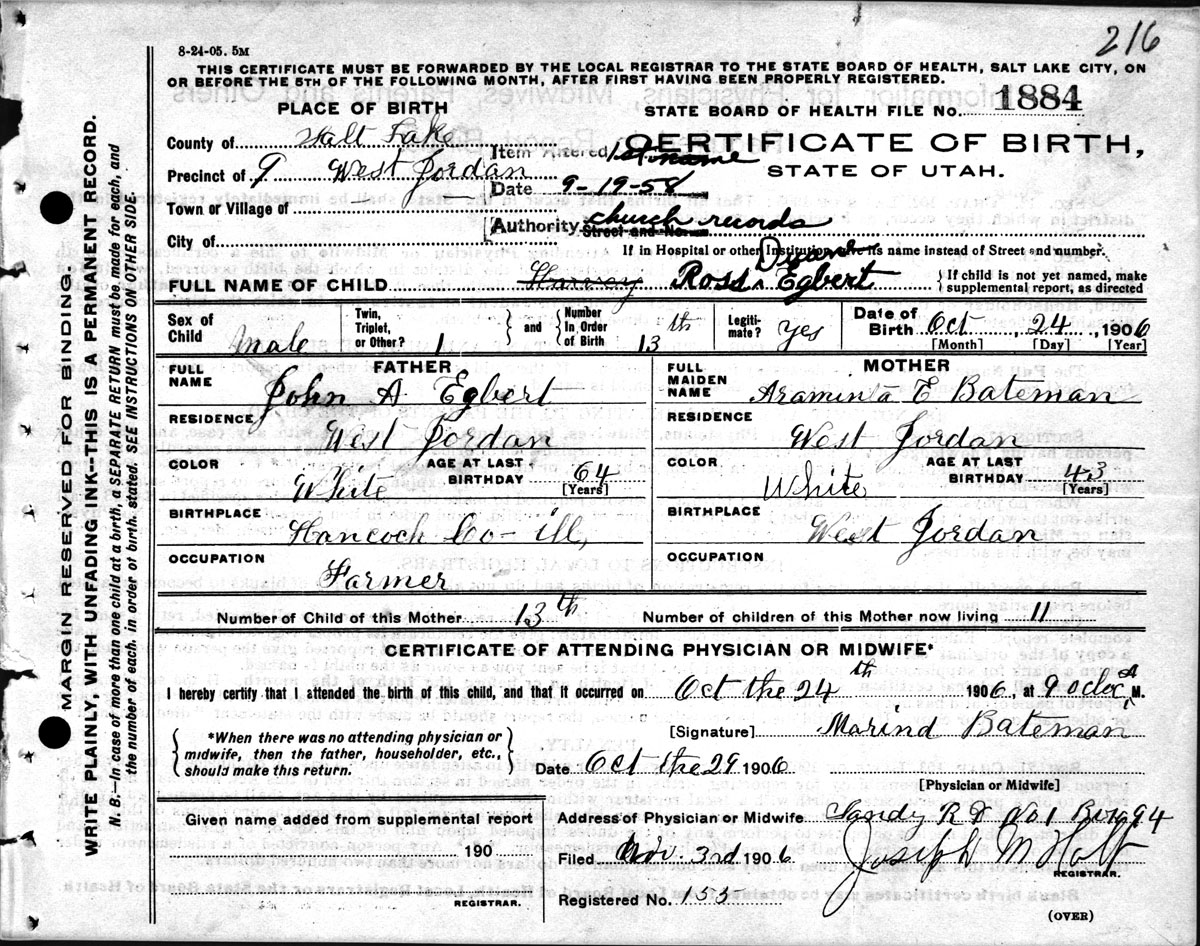 216
8-24-05. 5M
THIS CERTIFICATE MUST BE FORWARDED BY THE LOCAL REGISTRAR TO THE STATE BOARD OF HEALTH, SALT LAKE CITY, ON
OR BEFORE THE 5TH OF THE FOLLOWING MONTH, AFTER FIRST HAVING BEEN PROPERLY REGISTERED.
MARGIN RESERVED FOR BINDING.
WRITE PLAINLY, WITH UNFADING INK--THIS IS A PERMANENT RECORD.
N. B.—In case of more than one child at a birth, a SEPARATE RETURN must be made for each, and
the number of each, in order of birth, stated. SEE INSTRUCTIONS ON OTHER SIDE.
PLACE OF BIRTH
STATE BOARD OF HEALTH FILE No. 1884
County of Salt Lake
CERTIFICATE OF BIRTH,
STATE OF UTAH.
Item Altered 1st name
Precinct of West Jordan
Date 9-19-58
Town or Village of
Authority church records
Street and No.
City of
If in Hospital or other Institution give its name instead of Street and number.
FULL NAME OF CHILD Harvey Ross Egbert
If child is not yet named, make
supplemental report, as directed
Sex of Child Male
Twin, Triplet, or Other? 1
and
Number In Order of Birth 13th
Legitimate? Yes
Date of Birth Oct 24, 1906
[Month] [Day] [Year]
FATHER
FULL NAME John A Egbert
RESIDENCE West Jordan
COLOR White
AGE AT LAST BIRTHDAY 64
[Years]
BIRTHPLACE Hancock Co- Ill,
OCCUPATION Farmer
MOTHER
FULL MAIDEN NAME Araminta E Bateman
RESIDENCE West Jordan
COLOR White
AGE AT LAST BIRTHDAY 43
[Years]
BIRTHPLACE West Jordan
OCCUPATION
Number of Child of this Mother 13th
Number of children of this Mother now living 11
CERTIFICATE OF ATTENDING PHYSICIAN OR MIDWIFE*
I hereby certify that I attended the birth of this child, and that it occurred on Oct the 24th 1906, at 9 ocloc A M.
*When there was no attending physician or
midwife, then the father, householder, etc.,
should make this return.
[Signature] Marind Bateman
Date Oct the 29 1906
[Physician or Midwife]
Given name added from supplemental report
190
REGISTRAR.
Address of Physician or Midwife Sandy R D No 1 Box 94
Filed Nov. 3rd 1906
Joseph M Holt
REGISTRAR.
Registered No. 155
(OVER)